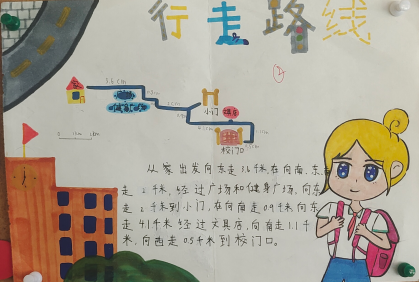 行走路线
②
家
3.6cm
小门
校门口
从家出发向东走3.6千米在向南、东
走2千米经过广场和健身广场,向东
走2千米到小门,在向南走0.9千米向东
走4.1千米经过文具店,向南走1.1千
米,向西走0.5千米到校门口。